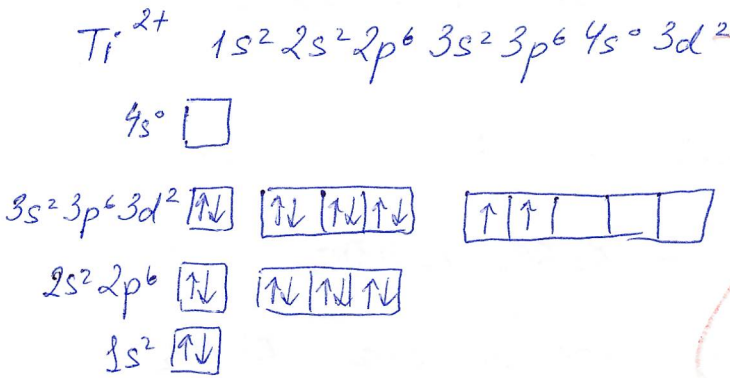 Ti²⁺ 1s² 2s² 2p⁶ 3s² 3p⁶ 4s⁰ 3d²
4s⁰
3s² 3p⁶ 3d² ↑↓ ↑↓ ↑↓ ↑↓ ↑ ↑
2s² 2p⁶ ↑↓ ↑↓ ↑↓ ↑↓
1s² ↑↓